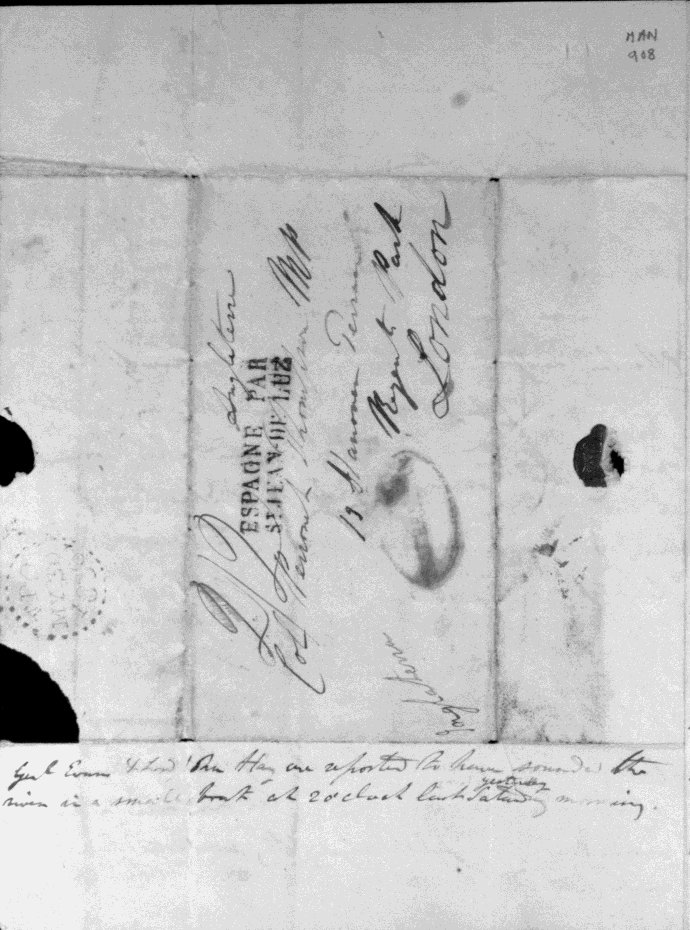 MAN
908
Angleterre
ESPAGNE PAR
ST JEAN-DE LUZ
Col Perronet Thompson MP
13 Hanover Terrace
Regents Park
London
Angleterre
MY 30
Genl Evans & Lord John Hay are reported to have sounded the
yesterday
river in a small boat at 2 o'clock last Saturday morning.